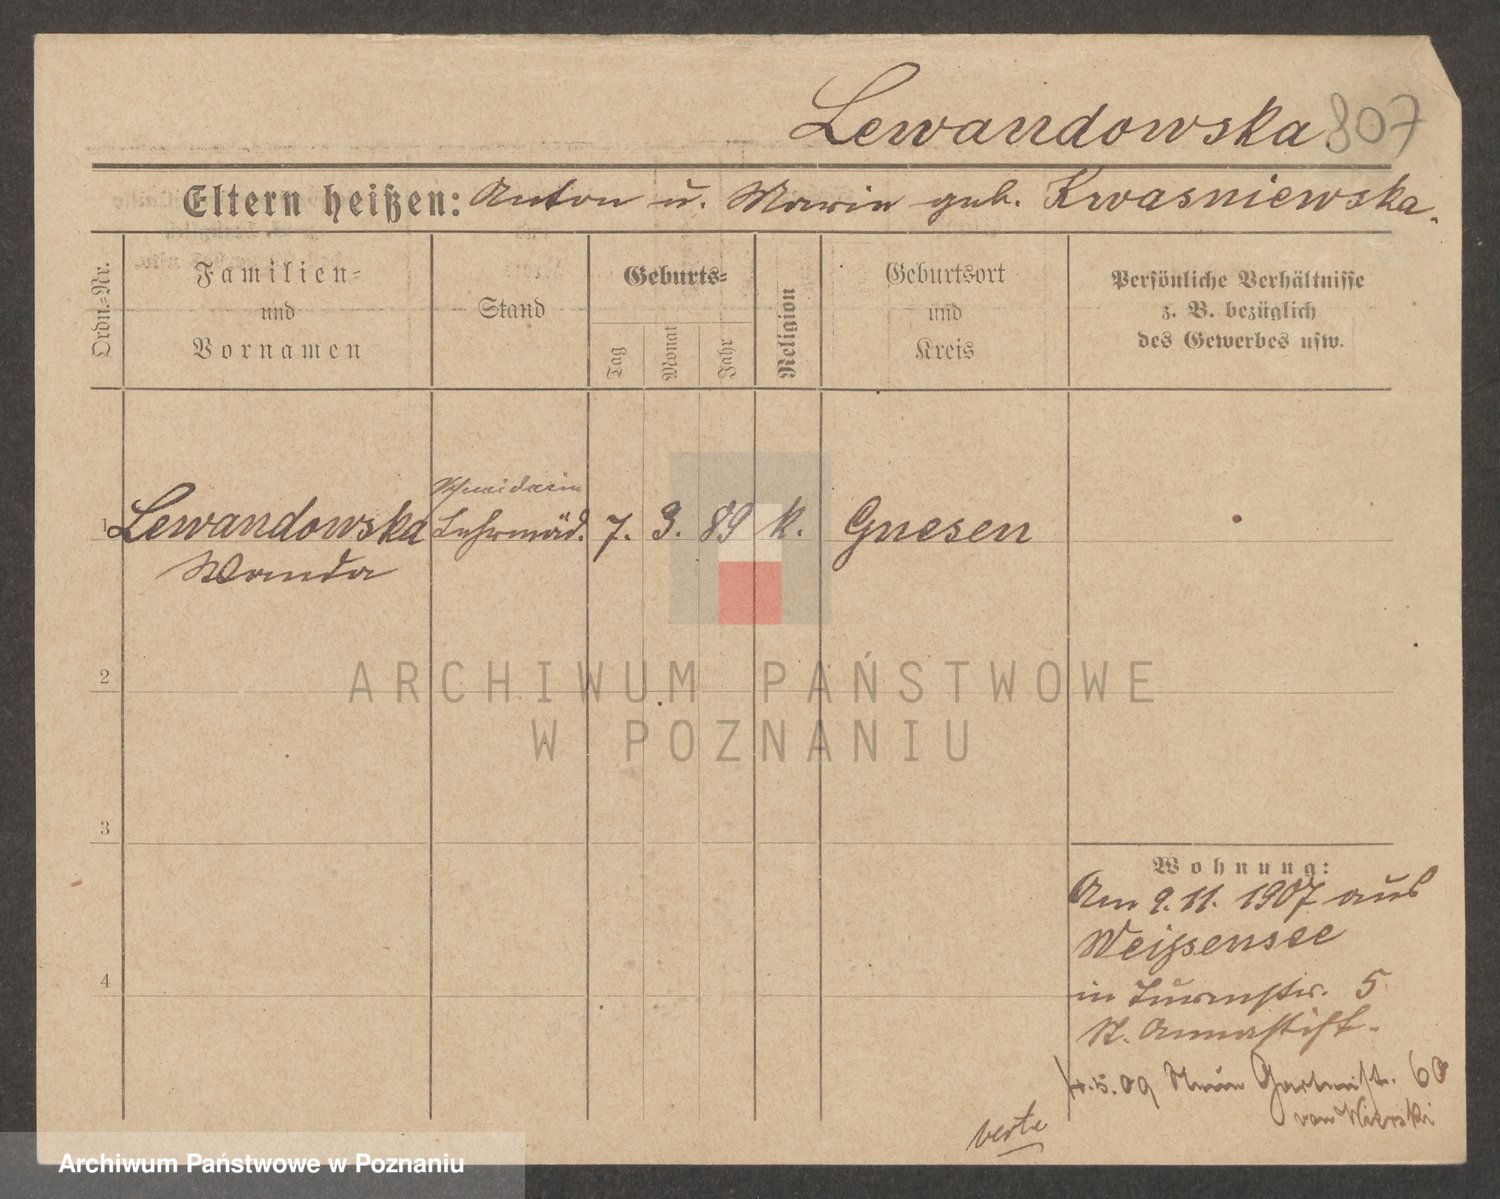 Lewandowska 807
Eltern heißen: Anton u. Marie geb. Kwasniewska.
Ordn.-Nr.
Familien-
und
Vornamen
Stand
Geburts-
Tag
Monat
Jahr
Religion
Geburtsort
und
Kreis
Persönliche Verhältnisse
z. B. bezüglich
des Gewerbes usw.
Schneiderin
1 Lewandowska Lehrmäd. 7. 3. 89 k. Gnesen
Wanda
2
ARCHIWUM PAŃSTWOWE
W POZNANIU
3
Wohnung:
Am 9. 11. 1907 aus
Weißensee
4
in Turmstr. 5
St. Annastift.
4.5.09 Neue Gartenst. 60
von Wierski
verte
Archiwum Państwowe w Poznaniu